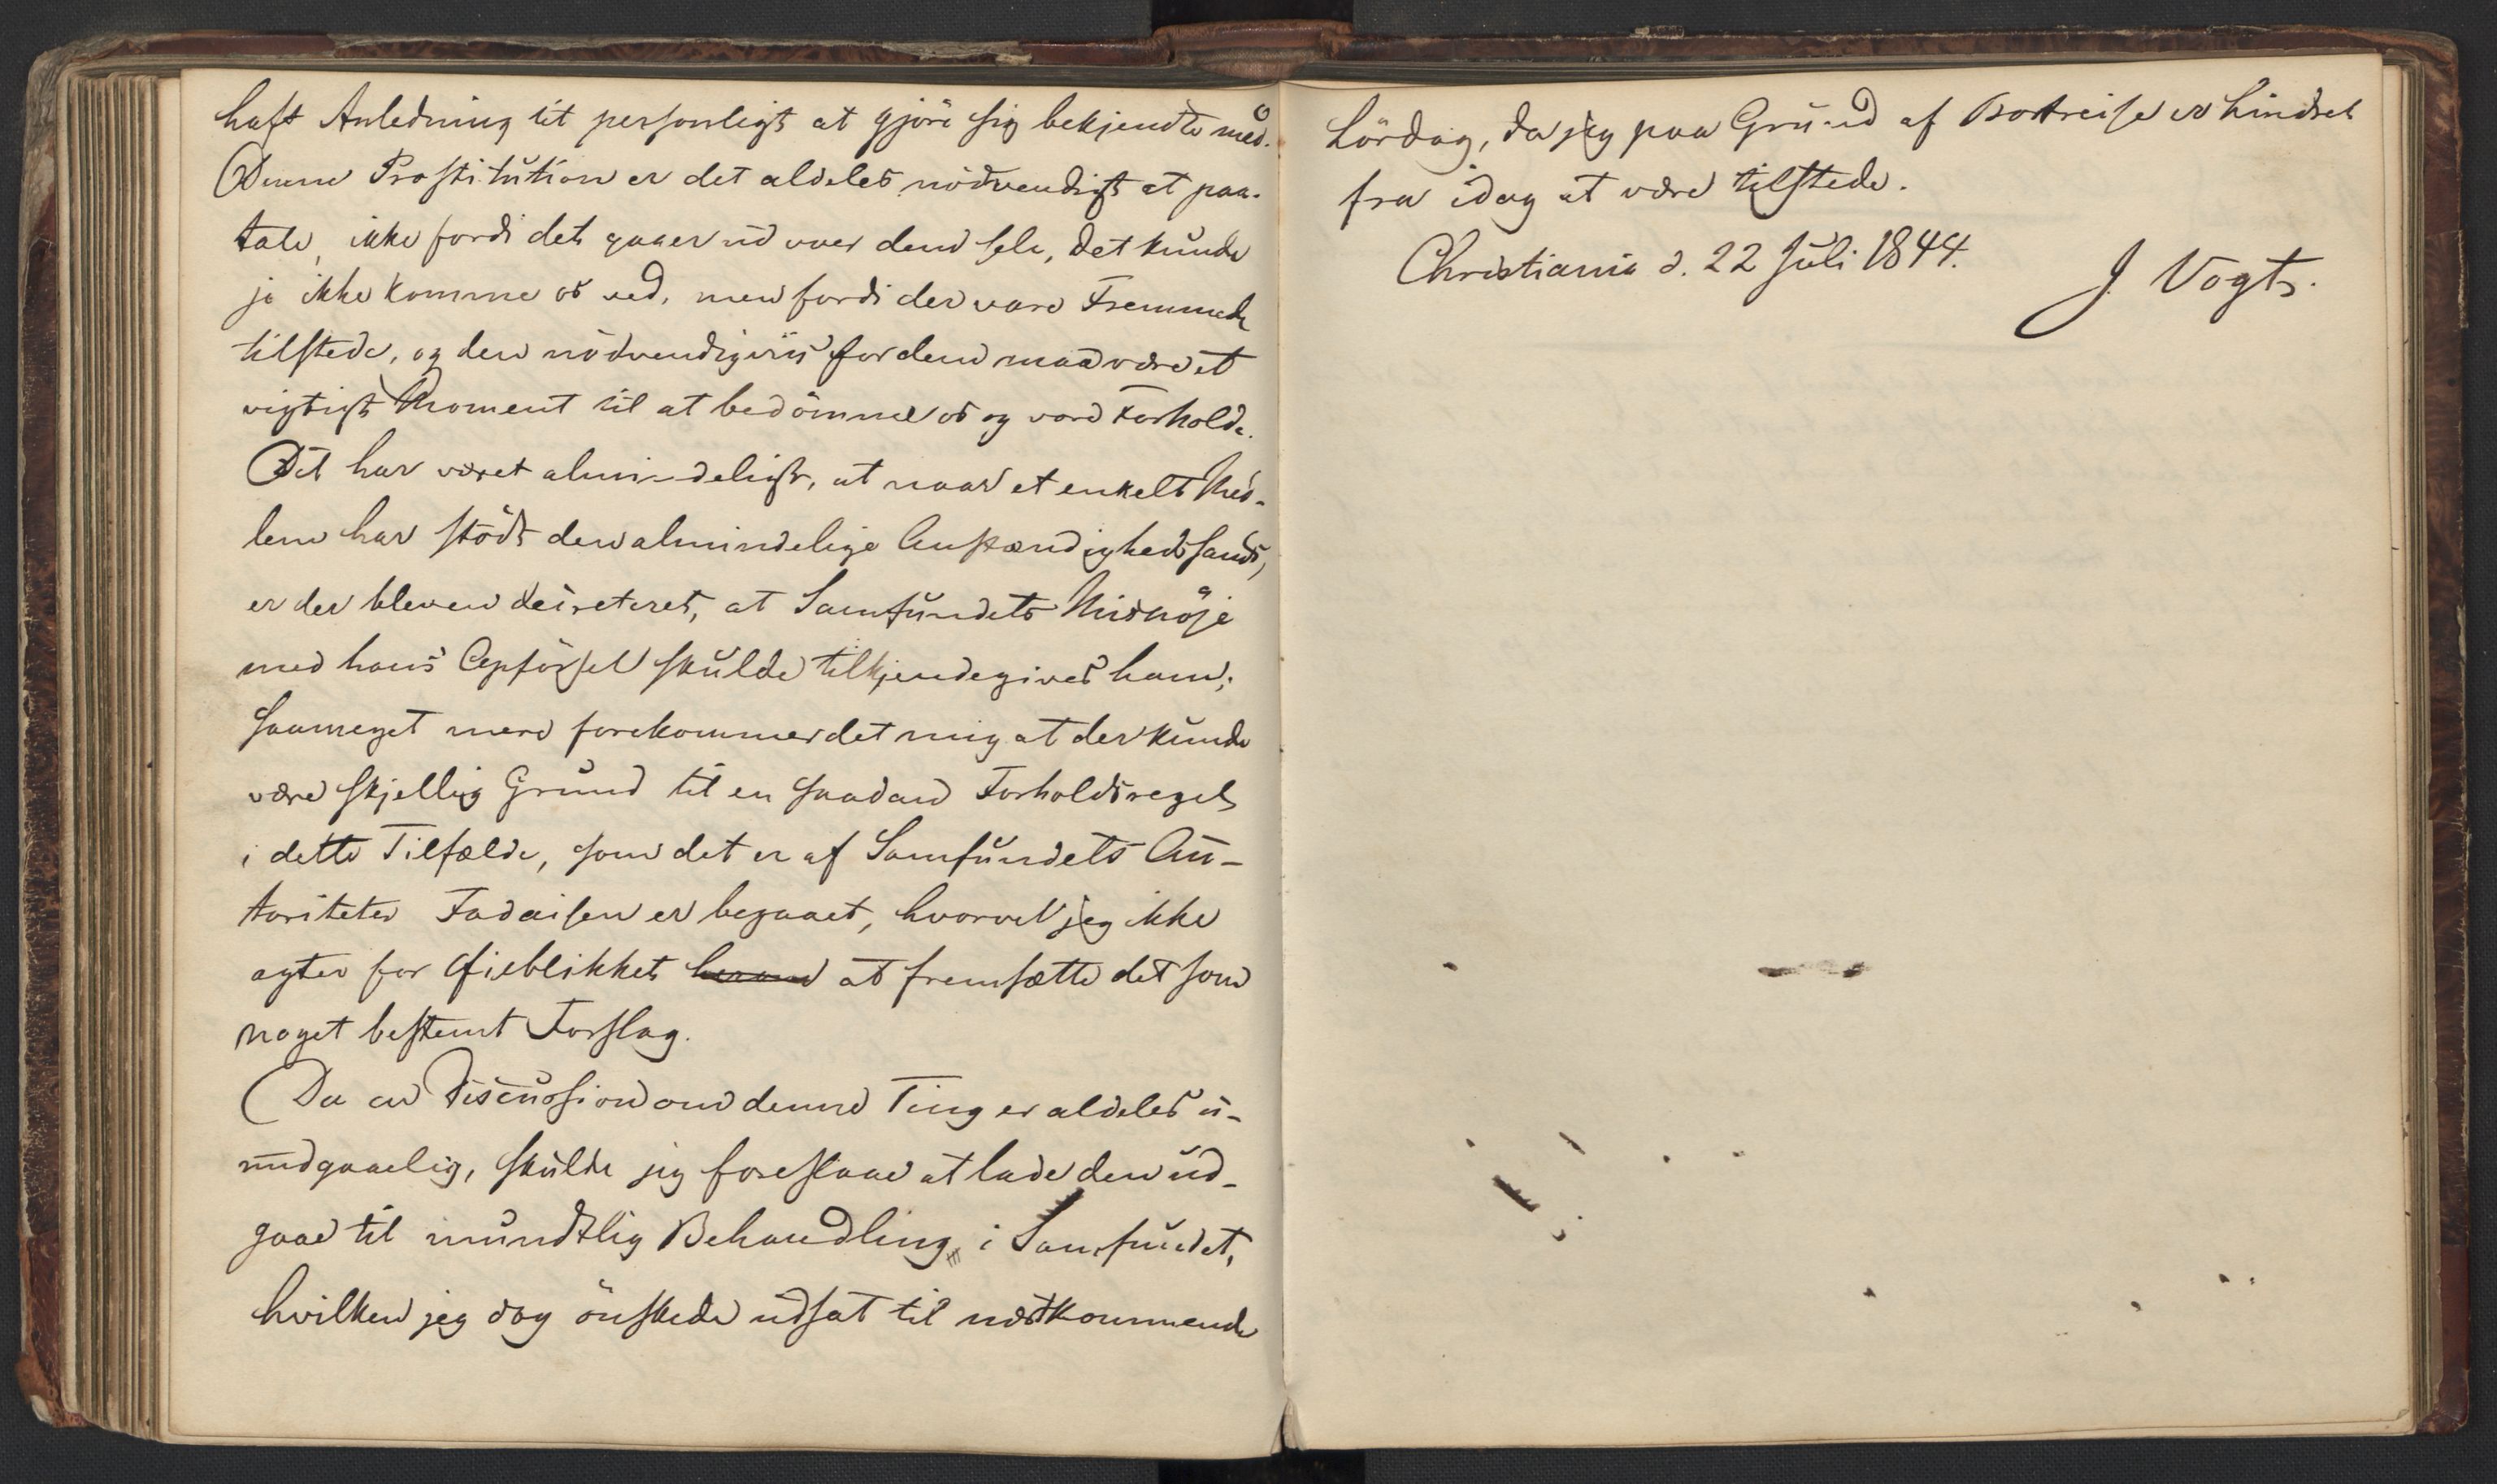 haft Anledning til personligt at gjöre sig bekjendte med.
Denne Prostitution er det aldeles nödvendigt at paa-
tale, ikke fordi det gaaer ud over dem selv, det kunde
jo ikke komme os ved, men fordi der vare Fremmede
tilstede, og den nödvendigviis for dem maa være et
vigtigt Moment til at bedömme os og vore Forholde.
Det har været almindeligt, at naar et enkelt Med-
lem har stödt den almindelige Anstændighedssands,
er der bleven decreteret, at Samfundets Misnöje
med hans Opförsel skulde tilkjendegives ham;
saameget mere forekommer det mig at der kunde
være skjellig Grund til en saadan Forholdsregel
i dette Tilfælde, som det er af Samfundets Au-
toriteter Fadaisen er begaaet, hvorvel jeg ikke
agter for Øieblikket at fremsætte det som
noget bestemt Forslag.
Da en Discussion om denne Ting er aldeles u-
undgaaelig, skulde jeg foreslaae at lade den ud-
gaae til mundtlig Behandling i Samfundet,
hvilken jeg dog önskede udsat til næstkommende
Lördag, da jeg paa Grund af Bortreise er hindret
fra idag at være tilstede.
Christiania d. 22 Juli 1844.
J Vogt.